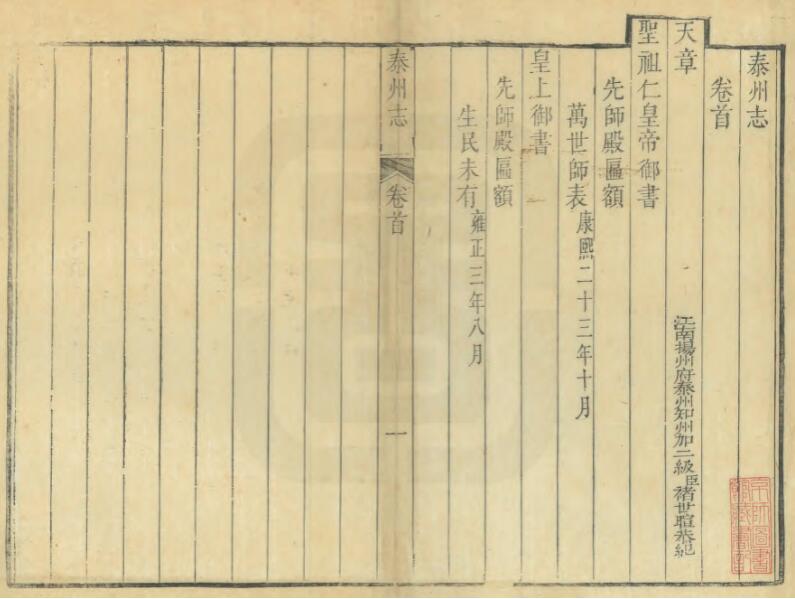 泰州志
卷首
天章
江南揚州府泰州知州加二級臣褚世暄恭紀
聖祖仁皇帝御書
先師殿匾額
萬世師表康熙二十三年十月
皇上御書
先師殿匾額
生民未有雍正三年八月
泰州志
卷首
一
京師圖書館藏書記